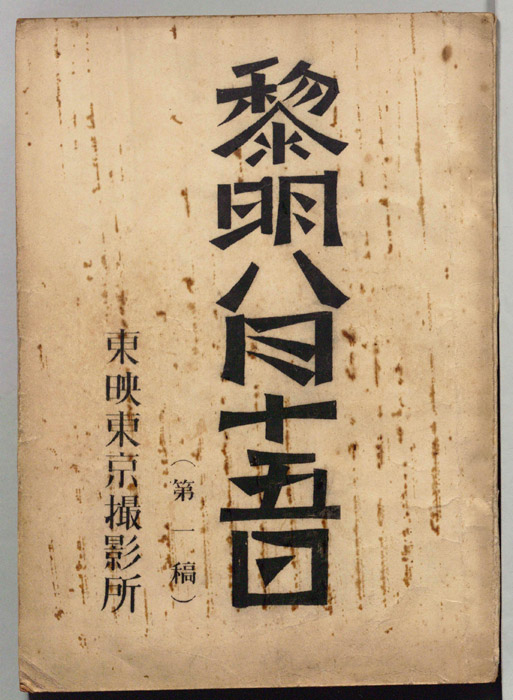 黎明八月十五日
(第一稿)
東映東京撮影所